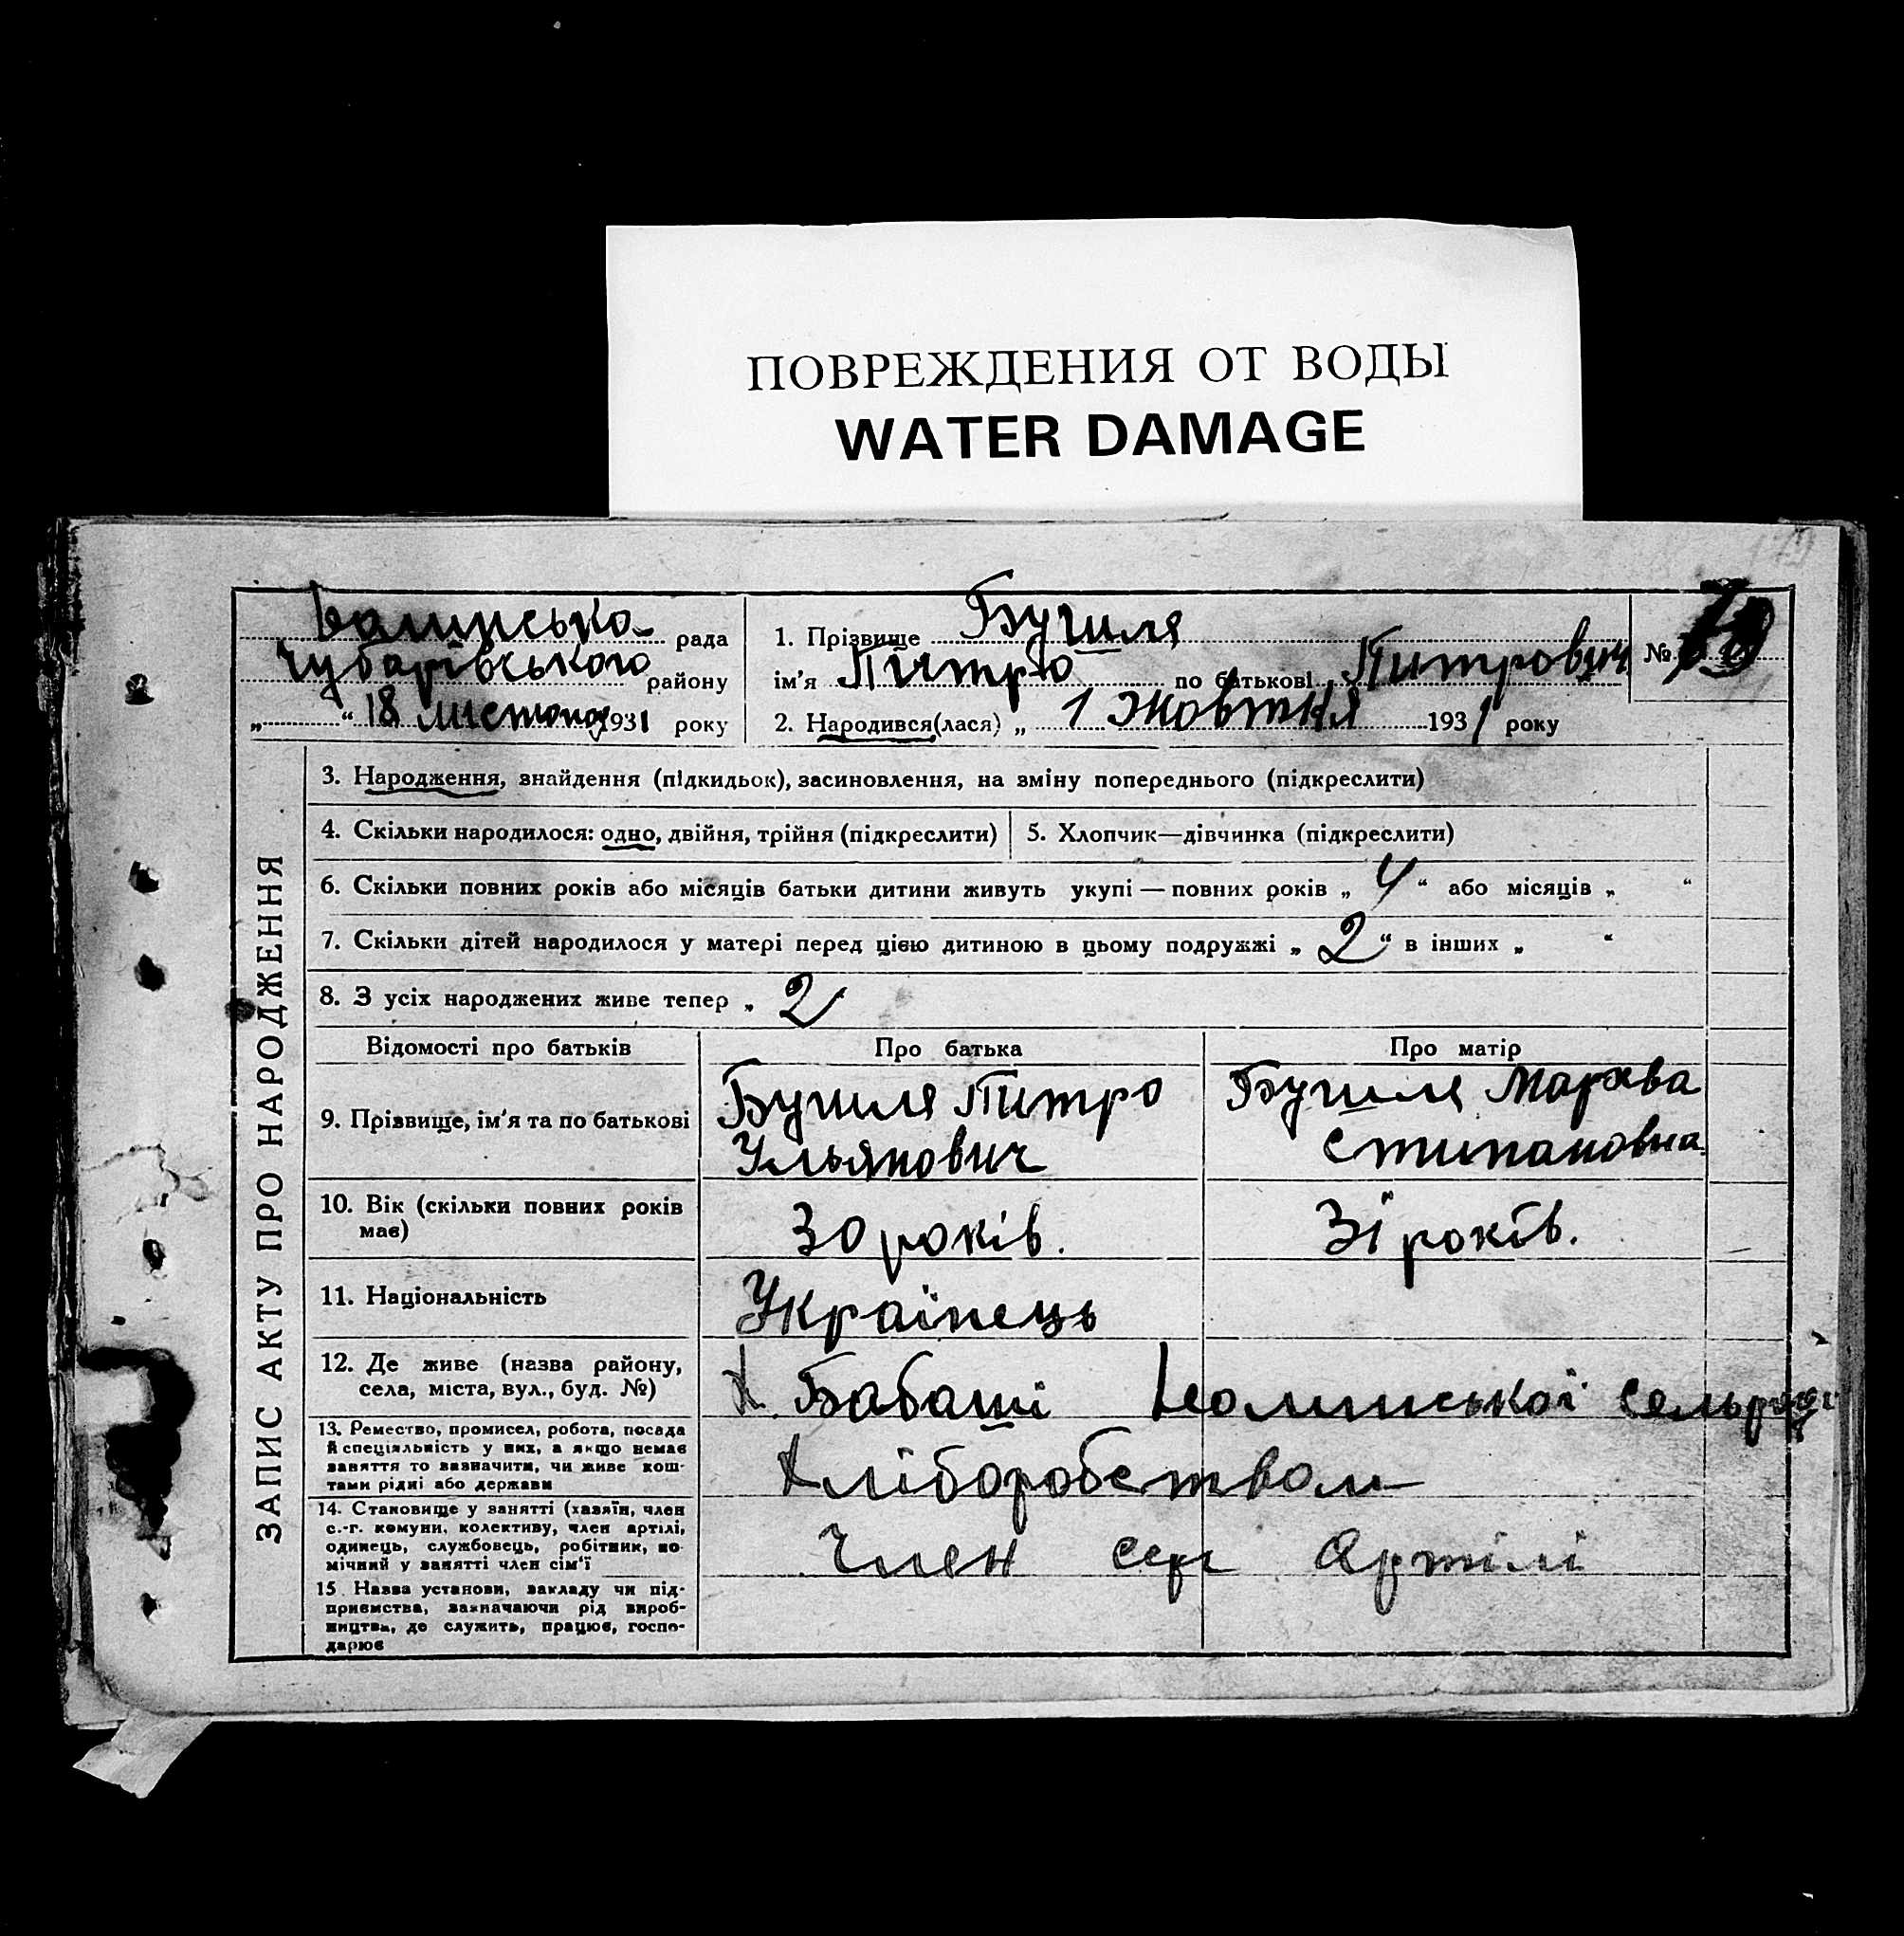 ПОВРЕЖДЕНИЯ ОТ ВОДЫ
WATER DAMAGE
рада
Чубарівського району
„ “ 18 листопад 1931 року
1. Прізвище Бугиля
ім'я Питро по батькові Питрович
2. Народився(лася) „ 1 Жовтня 1931 року
№
ЗАПИС АКТУ ПРО НАРОДЖЕННЯ
3. Народження, знайдення (підкидьок), засиновлення, на зміну попереднього (підкреслити)
4. Скільки народилося: одно, двійня, трійня (підкреслити)
5. Хлопчик—дівчинка (підкреслити)
6. Скільки повних років або місяців батьки дитини живуть укупі — повних років „ 4 “ або місяців „ “
7. Скільки дітей народилося у матері перед цією дитиною в цьому подружжі „ 2 “ в інших „ “
8. З усіх народжених живе тепер „ 2
Відомості про батьків
Про батька
Про матір
9. Прізвище, ім'я та по батькові
Бугиля Питро
Ульянович
Бугиля Мархва
Стипановна
10. Вік (скільки повних років
має)
30 років.
31 років.
11. Національність
Українець
12. Де живе (назва району,
села, міста, вул., буд. №)
х. Бабаші сельради
13. Ремество, промисел, робота, посада
й спеціяльність у них, а якщо немає
заняття то вазначити, чи живе кош-
тами рідні або держави
Хліборобством
14. Становище у занятті (хазяїн, член
с.-г. комуни, колективу, член артілі,
одинець, службовець, робітник, по-
мічний у занятті член сім'ї
Член сог Артілі
15. Назва установи, закладу чи під-
приємства, зазначаючи рід вироб-
ництва, де служить, працює, госпо-
дарює